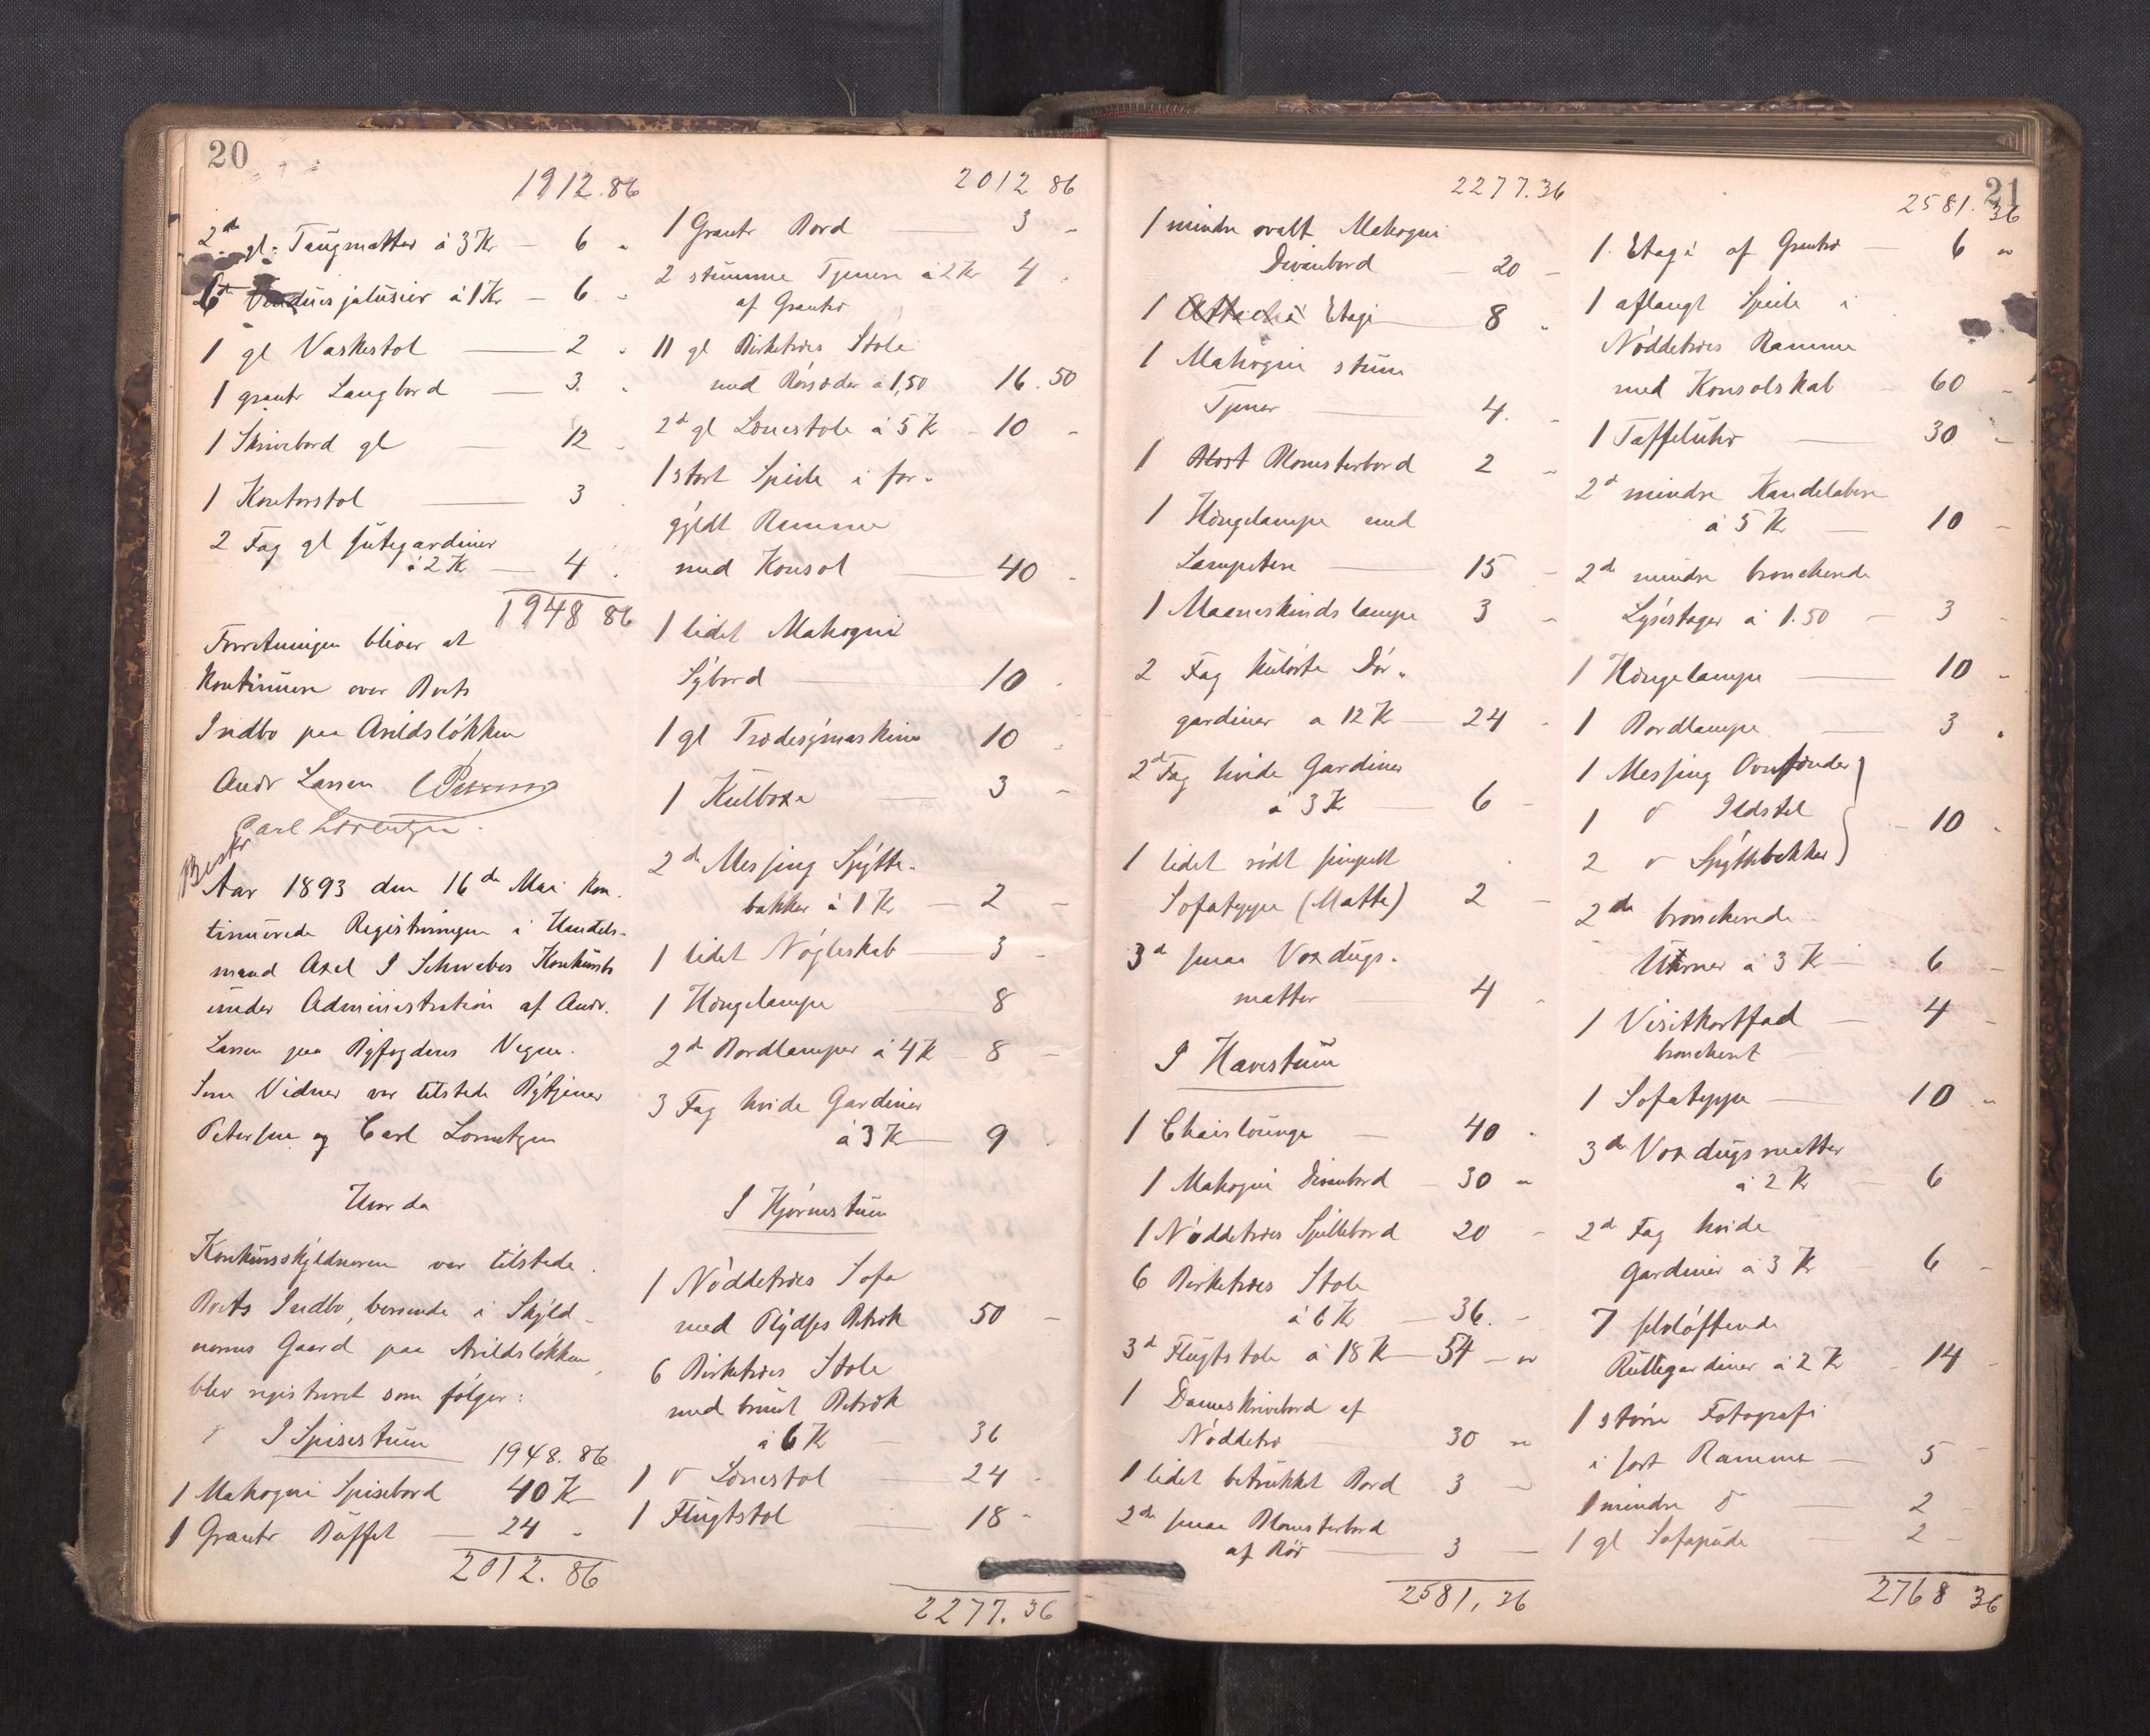 20
1912.86
2de gl: Taugmatter à 3 Kr — 6 "
6 Vinduesjalusier à 1 Kr — 6 "
1 gl Vaskestol — 2 "
1 grantr Langbord — 3 "
1 Skrivebord gl — 12 "
1 Kontorstol — 3
2 Fag gl jutegardiner
à 2 Kr — 4 "
1948 86
Forretningen bliver at
kontinuere over Boets
Indbo paa Arildsløkken
Andr Lassen
Carl Lorentzen.
Aar 1893 den 16de Mai kon-
tinuerede Registreringen i Handels-
mand Axel I Schwabes Konkursbo
under Administration af Andr.
Lassen paa Byfogdens Vegne.
Som Vidner var tilstede Bytjener
Petersen og Carl Lorentzen
Hvor da
Konkursskyldneren var tilstede.
Boets Indbo, beroende i Skyld-
nerens Gaard paa Arildsløkken,
blev registreret som følger:
I Spisestuen
1948.86
1 Mahogni Spisebord 40 Kr
1 Grantr Buffet — 24 "
2012.86
2012 86
1 Grantr Bord — 3 -
2 stumme Tjenere à 2 Kr 4
af Grantræ
11 gl Birketræes Stole
med Rørsæder à 1,50 16.50
2de gl Lænestole à 5 Kr - 10 -
1 stort Speile i for-
gyldt Ramme
med Konsol — 40 -
1 lidet Mahogni
Sybord — 10 -
1 gl Trædesymaskine 10 -
1 Kulboxe — 3 -
2de Messing Spytte-
bakker à 1 Kr — 2 -
1 lidet Nøgleskab — 3 -
1 Hængelampe — 8
2de Bordlamper à 4 Kr - 8 -
3 Fag hvide Gardiner
à 3 Kr — 9 -
I Hjørnestuen
1 Nøddetræes Sofa
med Plydses Betræk 50 -
6 Birketræes Stole
med brunt Betræk
à 6 Kr — 36
1 do Lænestol — 24 -
1 Flugtstol — 18 -
2277.36
2277.36
1 mindre ovalt Mahogni
Divanbord — 20 -
1 Etage — 8 "
1 Mahogni stum
Tjener — 4 -
1 Blost Blomsterbord 2 -
1 Hængelampe med
Lampetere — 15 -
1 Maaneskinds lampe 3 -
2 Fag kulørte Dør-
gardiner a 12 Kr — 24 -
2de Fag hvide Gardiner
à 3 Kr — 6 -
1 lidet rødt
Sofateppe (Matte) 2 -
3de smaa Voxdugs-
matter — 4 -
I Havestuen
1 Chaislounge — 40 -
1 Mahogni Divanbord — 30 "
1 Nøddetræes Spillebord 20 -
6 Birketræes Stole
à 6 Kr — 36. -
3de Flugtstole à 18 Kr — 54 - "
1 Dameskrivebord af
Nøddetræ — 30 "
1 lidet betrukket Bord 3 -
2de smaa Blomsterbord
af Rør — 3 -
2581,36
21
2581.36
1 Etage af Grantræ — 6 "
1 aflangt Speile i
Nøddetræes Ramme
med Konsolskab - 60 -
1 Taffeluhr — 30 -
2de mindre Kandelabere
à 5 Kr — 10 -
2de mindre broncherede
Lysestager à 1.50 — 3 -
1 Hængelampe — 10 -
1 Bordlampe — 3 "
1 Messing Ovnsfender
1 do Ildstel — 10 -
2 do Spyttebakker
2de broncherede
Urner à 3 Kr — 6 -
1 Visitkortfad — 4 -
broncheret
1 Sofateppe — 10 "
3de Voxdugsmatter
à 2 Kr — 6
2de Fag hvide
Gardiner à 3 Kr - 6 -
7 selvløftende
Rullegardiner à 2 Kr - 14 -
1 større Fotografi
i sort Ramme — 5 -
1 mindre do — 2 -
1 gl Sofapude — 2 -
2768 36